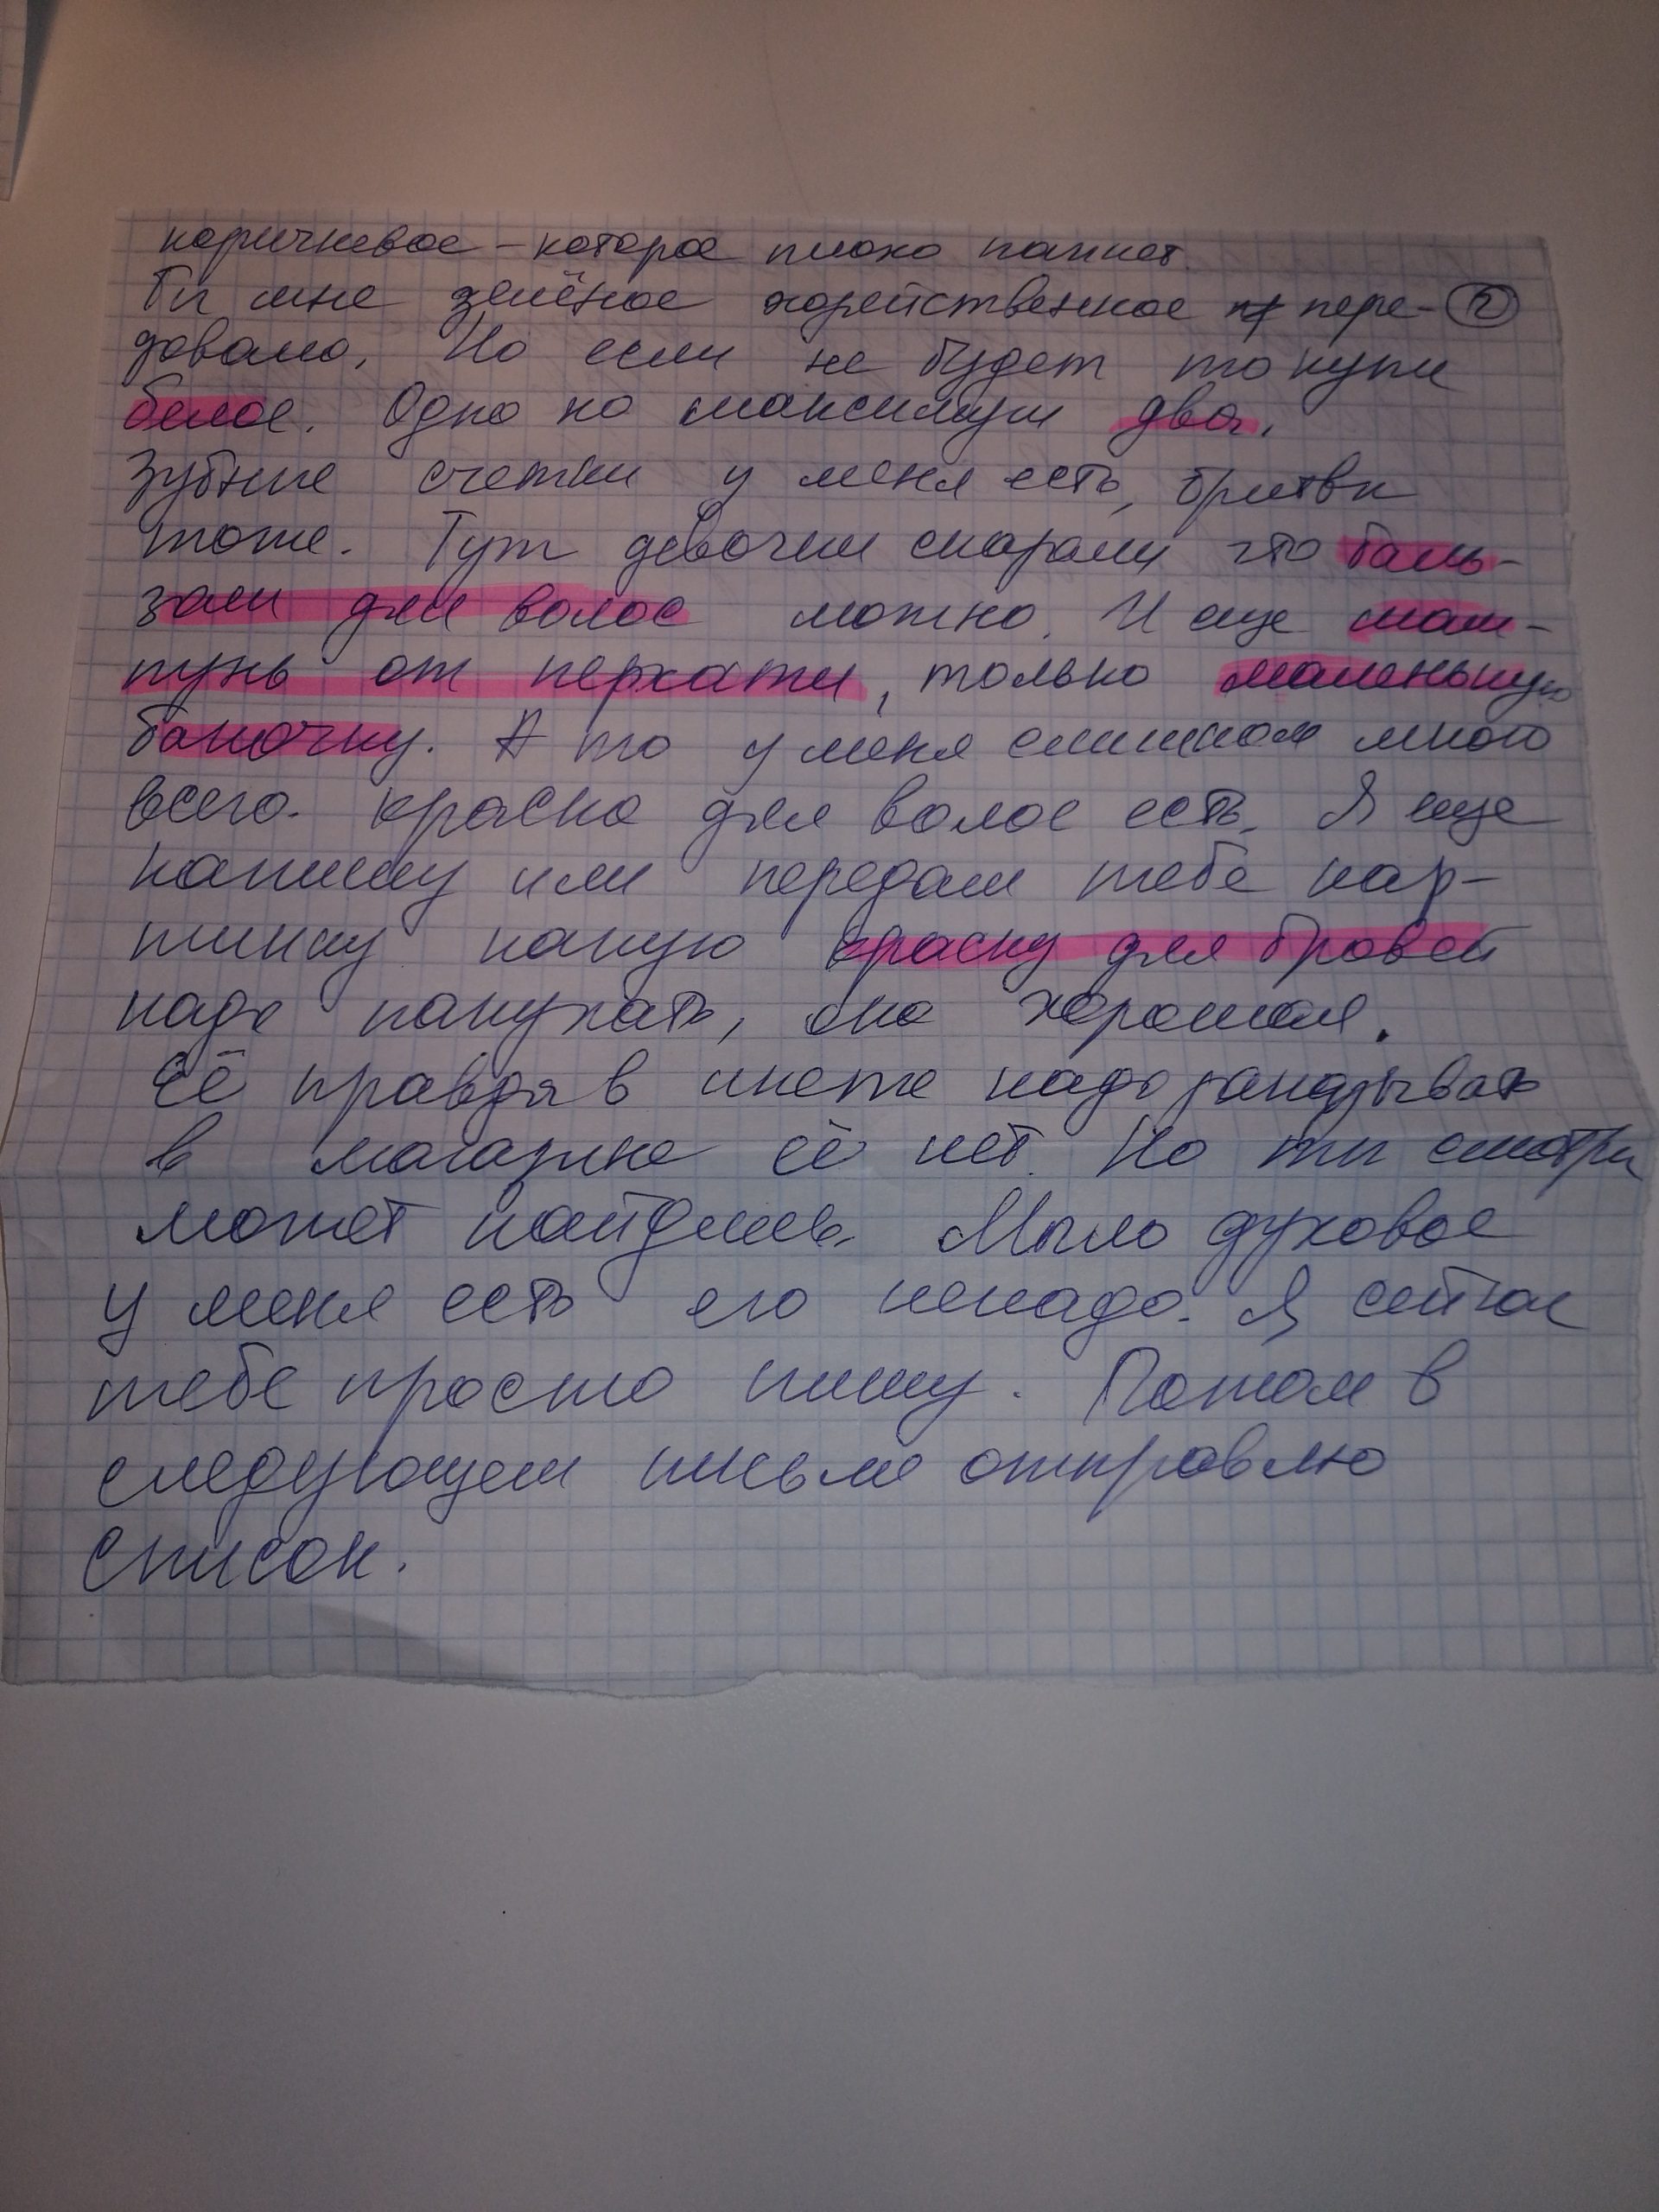 коричневое - которое плохо пахнет.
Ты мне зелёное хозяйственное пере- ②
давала. Но если не будет то купи
белое. Одно но максимум два.
Зубные счетки у меня есть, бритвы
тоже. Тут девочки сказали что баль-
зам для волос можно. И еще шам-
пунь от перхати, только маленькую
баночку. А то у меня слишком много
всего. Краска для волос есть. Я еще
напишу или передам тебе кар-
тинку какую краску для бровей
надо пакупать, она хорошая.
Её правда в инете надо заказывать
в магазине её нет. Но ты смотри
может найдешь. Мыло духовое
у меня есть его ненадо. Я сейчас
тебе просто пишу. Потом в
следующем письме отправлю
список.